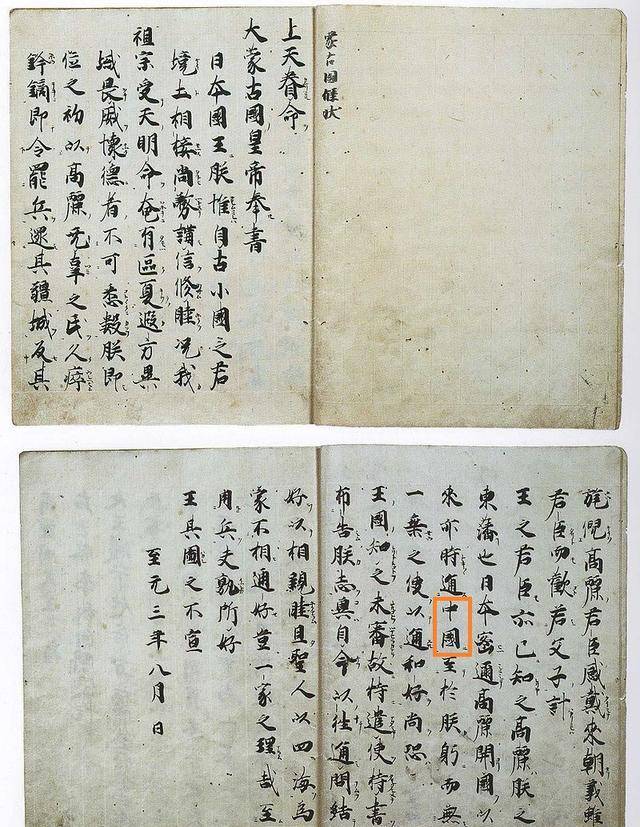 蒙古國牒状
上天眷命
大蒙古國皇帝奉書
日本國王朕惟自古小國之君
境土相接尚務講信修睦况我
祖宗受天明命奄有區夏遐方異
域畏威懷德者不可悉數朕即
位之初以高麗无辜之民久瘁
鋒鏑即令罷兵還其疆城反其
旄倪高麗君臣感戴來朝義雖
君臣而歡若父子計
王之君臣亦已知之高麗朕之
東藩也日本密邇高麗開國以
來亦時通中國至於朕躬而無
一乗之使以通和好尚恐
王國知之未審故特遣使持書
布告朕志冀自今以往通問結
好以相親睦且聖人以四海為
家不相通好豈一家之理哉至
用兵夫孰所好
王其圖之不宣
至元三年八月 日